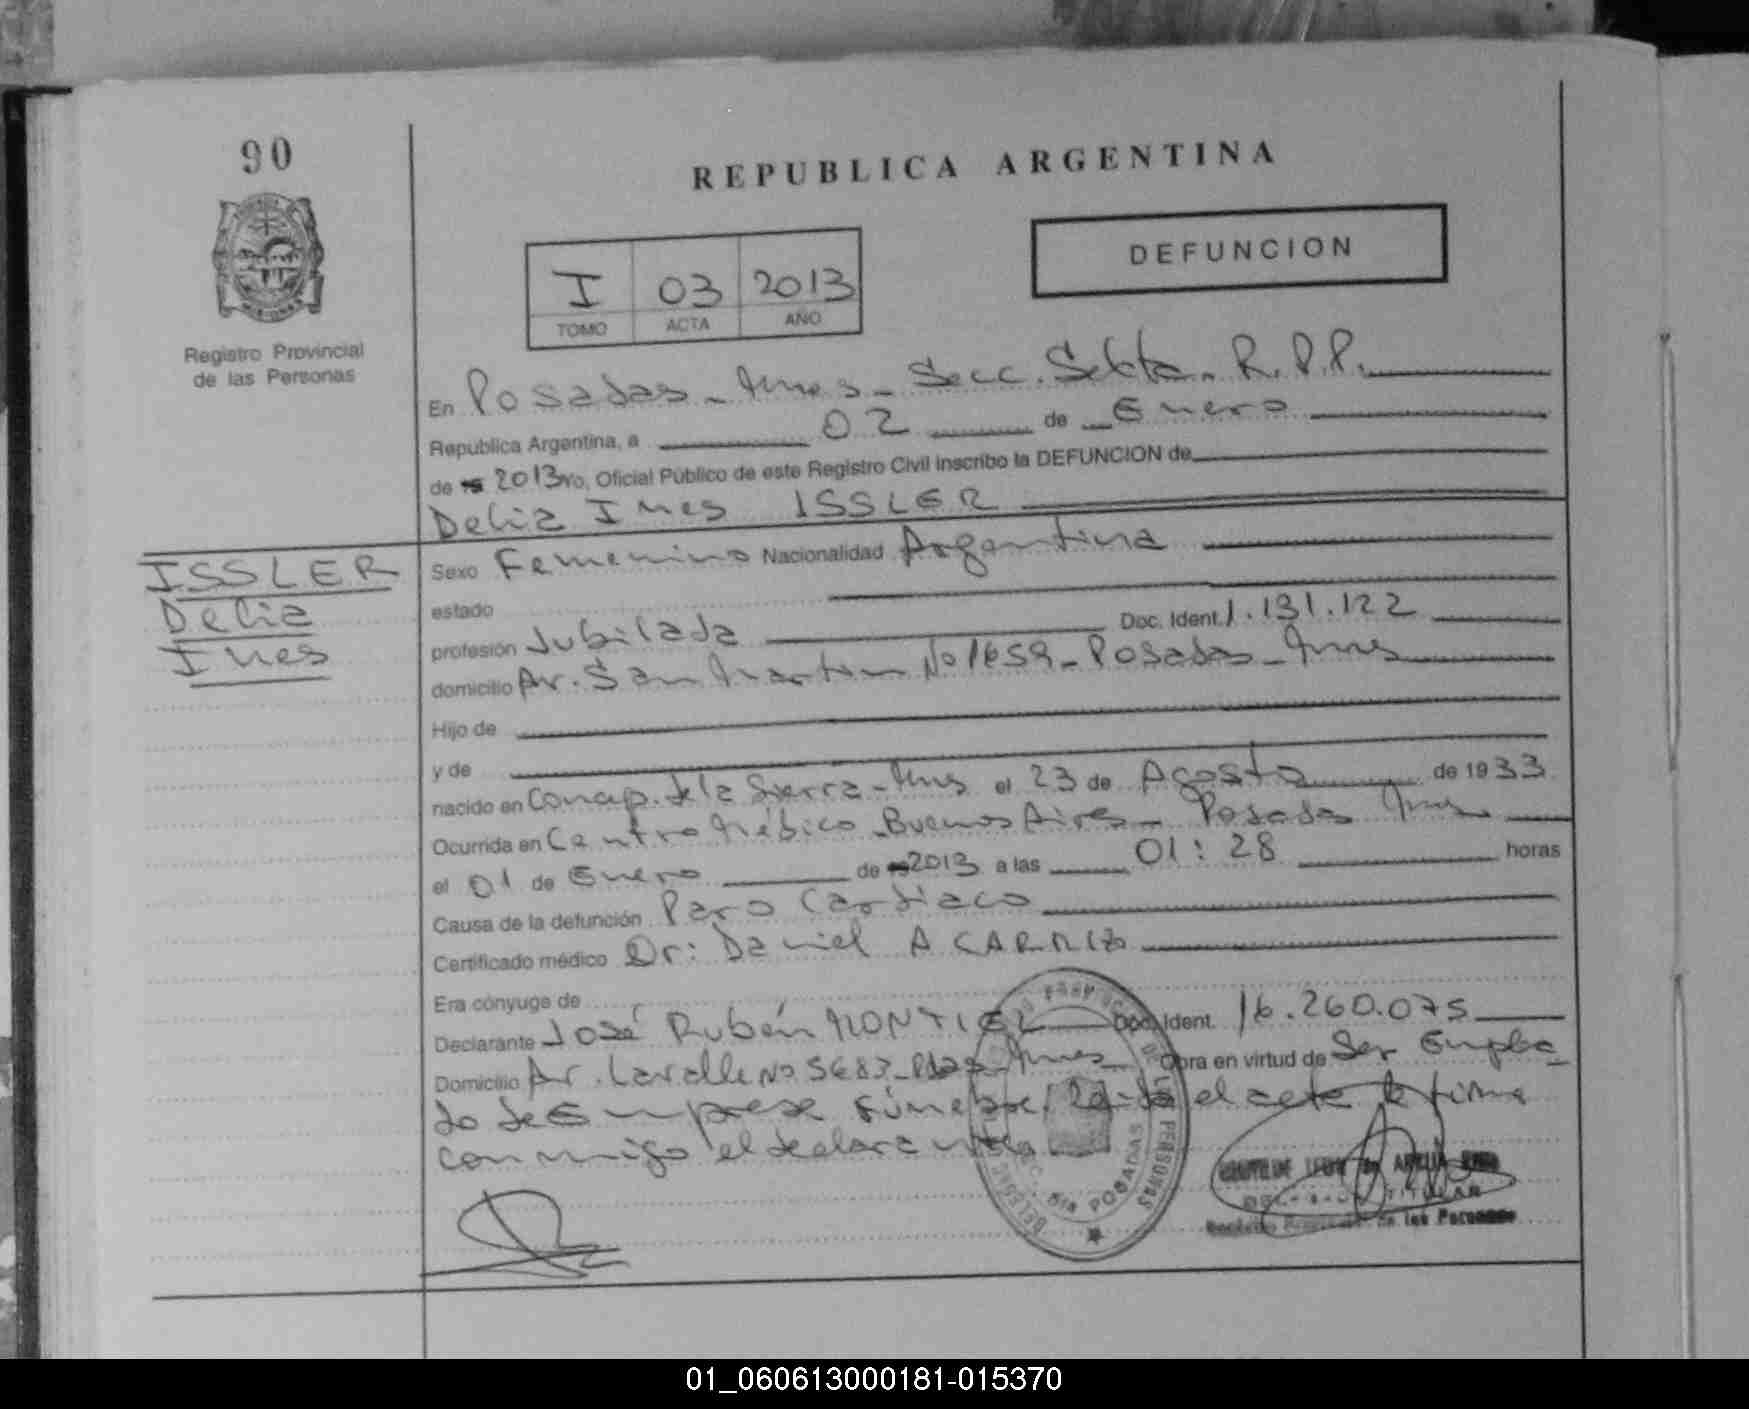 90
REPUBLICA ARGENTINA
DEFUNCION
I 03 2013
TOMO ACTA AÑO
Registro Provincial
de las Personas
En Posadas - Mnes - Secc. Sexta - R.P.P.
Republica Argentina, a 02 de Enero
de 2013 Yo, Oficial Público de este Registro Civil inscribo la DEFUNCION de
Delia Ines ISSLER
ISSLER
Delia
Ines
Sexo Femenino Nacionalidad Argentina
estado
profesión Jubilada Doc. Ident. 1.131.122
domicilio Av. San Martin No 1659 - Posadas - Mnes
Hijo de
y de
nacido en Concep. de la Sierra - Mnes el 23 de Agosto de 1933
Ocurrida en Centro Médico Buenos Aires - Posadas Mnes
el 01 de Enero de 2013 a las 01:28 horas
Causa de la defunción Paro Cardiaco
Certificado médico Dr: Daniel A
Era cónyuge de
Declarante José Rubén MONTIEL Doc. Ident. 16.260.075
Domicilio Av. Lavalle No 5683 - Pdas - Mnes Obra en virtud de Ser Emplea
do de Empresa Fúnebre, Leída el acta la firma
conmigo el declarante
DELEGACION SEC. 6ta POSADAS
DE LAS PERSONAS
TITULAR
de las Personas
01_060613000181-015370